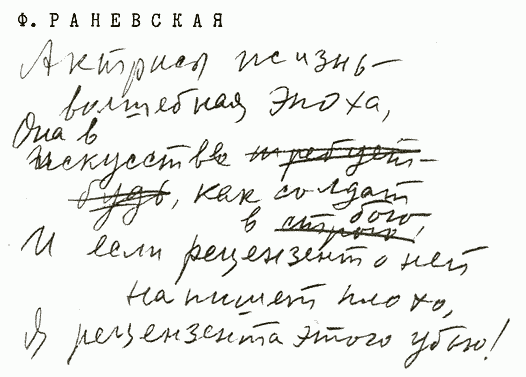 Ф. РАНЕВСКАЯ
Актрисы жизнь –
волшебная эпоха,
Она в
искусстве требует –
будь, как солдат
в строю бою,
И если рецензент о ней
напишет плохо,
Я рецензента этого убью!